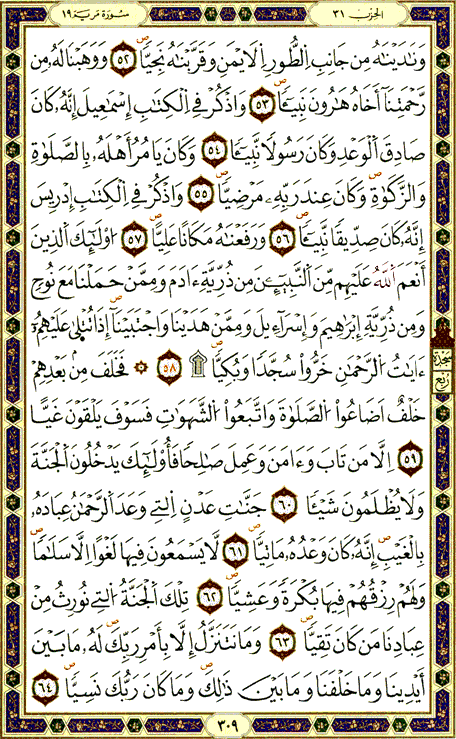 سورة مريم ١٩ الحزب ٣١
وَنَٰدَيْنَٰهُ مِن جَانِبِ اِ۬لطُّورِ اِ۬لَايْمَنِ وَقَرَّبْنَٰهُ نَجِيّاٗ ٥٢ وَوَهَبْنَا لَهُۥ مِن
رَّحْمَتِنَآ أَخَاهُ هَٰرُونَ نَبِيٓـٔاٗ ٥٣ وَاذْكُرْ فِے اِ۬لْكِتَٰبِ إِسْمَٰعِيلَ إِنَّهُۥ كَانَ
صَادِقَ اَ۬لْوَعْدِ وَكَانَ رَسُولاٗ نَّبِيٓـٔاٗ ٥٤ وَكَانَ يَامُرُ أَهْلَهُۥ بِالصَّلَوٰةِ
وَالزَّكَوٰةِ وَكَانَ عِندَ رَبِّهِۦ مَرْضِيّاٗ ٥٥ وَاذْكُرْ فِے اِ۬لْكِتَٰبِ إِدْرِيسَ
إِنَّهُۥ كَانَ صِدِّيقاٗ نَّبِيٓـٔاٗ ٥٦ وَرَفَعْنَٰهُ مَكَاناً عَلِيّاً ٥٧ ا۟وْلَٰٓئِكَ اَ۬لذِينَ
أَنْعَمَ اَ۬للَّهُ عَلَيْهِم مِّنَ اَ۬لنَّبِيٓـِٕۧنَ مِن ذُرِّيَّةِ ءَادَمَ وَمِمَّنْ حَمَلْنَا مَعَ نُوحٖ
وَمِن ذُرِّيَّةِ إِبْرَٰهِيمَ وَإِسْرَآءِيلَ وَمِمَّنْ هَدَيْنَا وَاجْتَبَيْنَآ إِذَا تُتْلَىٰ عَلَيْهِمُۥٓ
ءَايَٰتُ اُ۬لرَّحْمَٰنِ خَرُّوا۟ سُجَّداٗ وَبُكِيّاٗ ۩ ٥٨ ۞ فَخَلَفَ مِنۢ بَعْدِهِمْ
خَلْفٌ اَضَاعُوا۟ اُ۬لصَّلَوٰةَ وَاتَّبَعُوا۟ اُ۬لشَّهَوَٰتِ فَسَوْفَ يَلْقَوْنَ غَيّاً
٥٩ اِلَّا مَن تَابَ وَءَامَنَ وَعَمِلَ صَٰلِحاٗ فَأُوْلَٰٓئِكَ يَدْخُلُونَ اَ۬لْجَنَّةَ
وَلَا يُظْلَمُونَ شَيْـٔاٗ ٦٠ جَنَّٰتِ عَدْنٍ اِ۬لتِے وَعَدَ اَ۬لرَّحْمَٰنُ عِبَادَهُۥ
بِالْغَيْبِ إِنَّهُۥ كَانَ وَعْدُهُۥ مَاتِيّاٗ ٦١ لَّا يَسْمَعُونَ فِيهَا لَغْواً اِلَّا سَلَٰماٗ
وَلَهُمْ رِزْقُهُمْ فِيهَا بُكْرَةٗ وَعَشِيّاٗ ٦٢ تِلْكَ اَ۬لْجَنَّةُ اُ۬لتِے نُورِثُ مِنْ
عِبَادِنَا مَن كَانَ تَقِيّاٗ ٦٣ وَمَا نَتَنَزَّلُ إِلَّا بِأَمْرِ رَبِّكَ لَهُۥ مَا بَيْنَ
أَيْدِينَا وَمَا خَلْفَنَا وَمَا بَيْنَ ذَٰلِكَ وَمَا كَانَ رَبُّكَ نَسِيّاٗ ٦٤
سجدة
رابع
٣٠٩